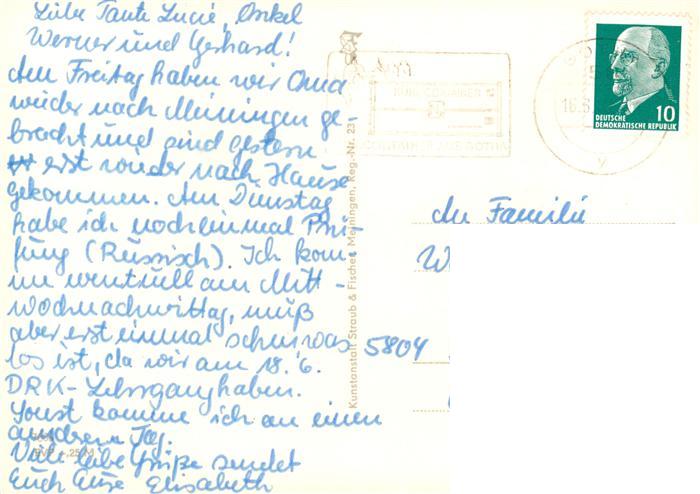 Liebe Tante Lucie, Onkel
Werner und Gerhard!
Am Freitag haben wir Oma
wieder nach Meiningen ge-
bracht und sind gestern
erst wieder nach Hause
gekommen. Am Dienstag
habe ich noch einmal Prü-
fung (Russisch). Ich kom-
me eventuell am Mitt-
wochnachmittag, muß
aber erst einmal sehen was
los ist, da wir am 18. 6.
DRK-Lehrgang haben.
Sonst komme ich an einen
anderen Tag.
Viele liebe Grüße sendet
Euch Eure Elisabeth
Kunstanstalt Straub & Fischer, Meiningen, Reg.-Nr. 23
KING CONTAINER
CONTAINER AUS GOTHA
16.6
10
DEUTSCHE
DEMOKRATISCHE REPUBLIK
An Familie
W
5804